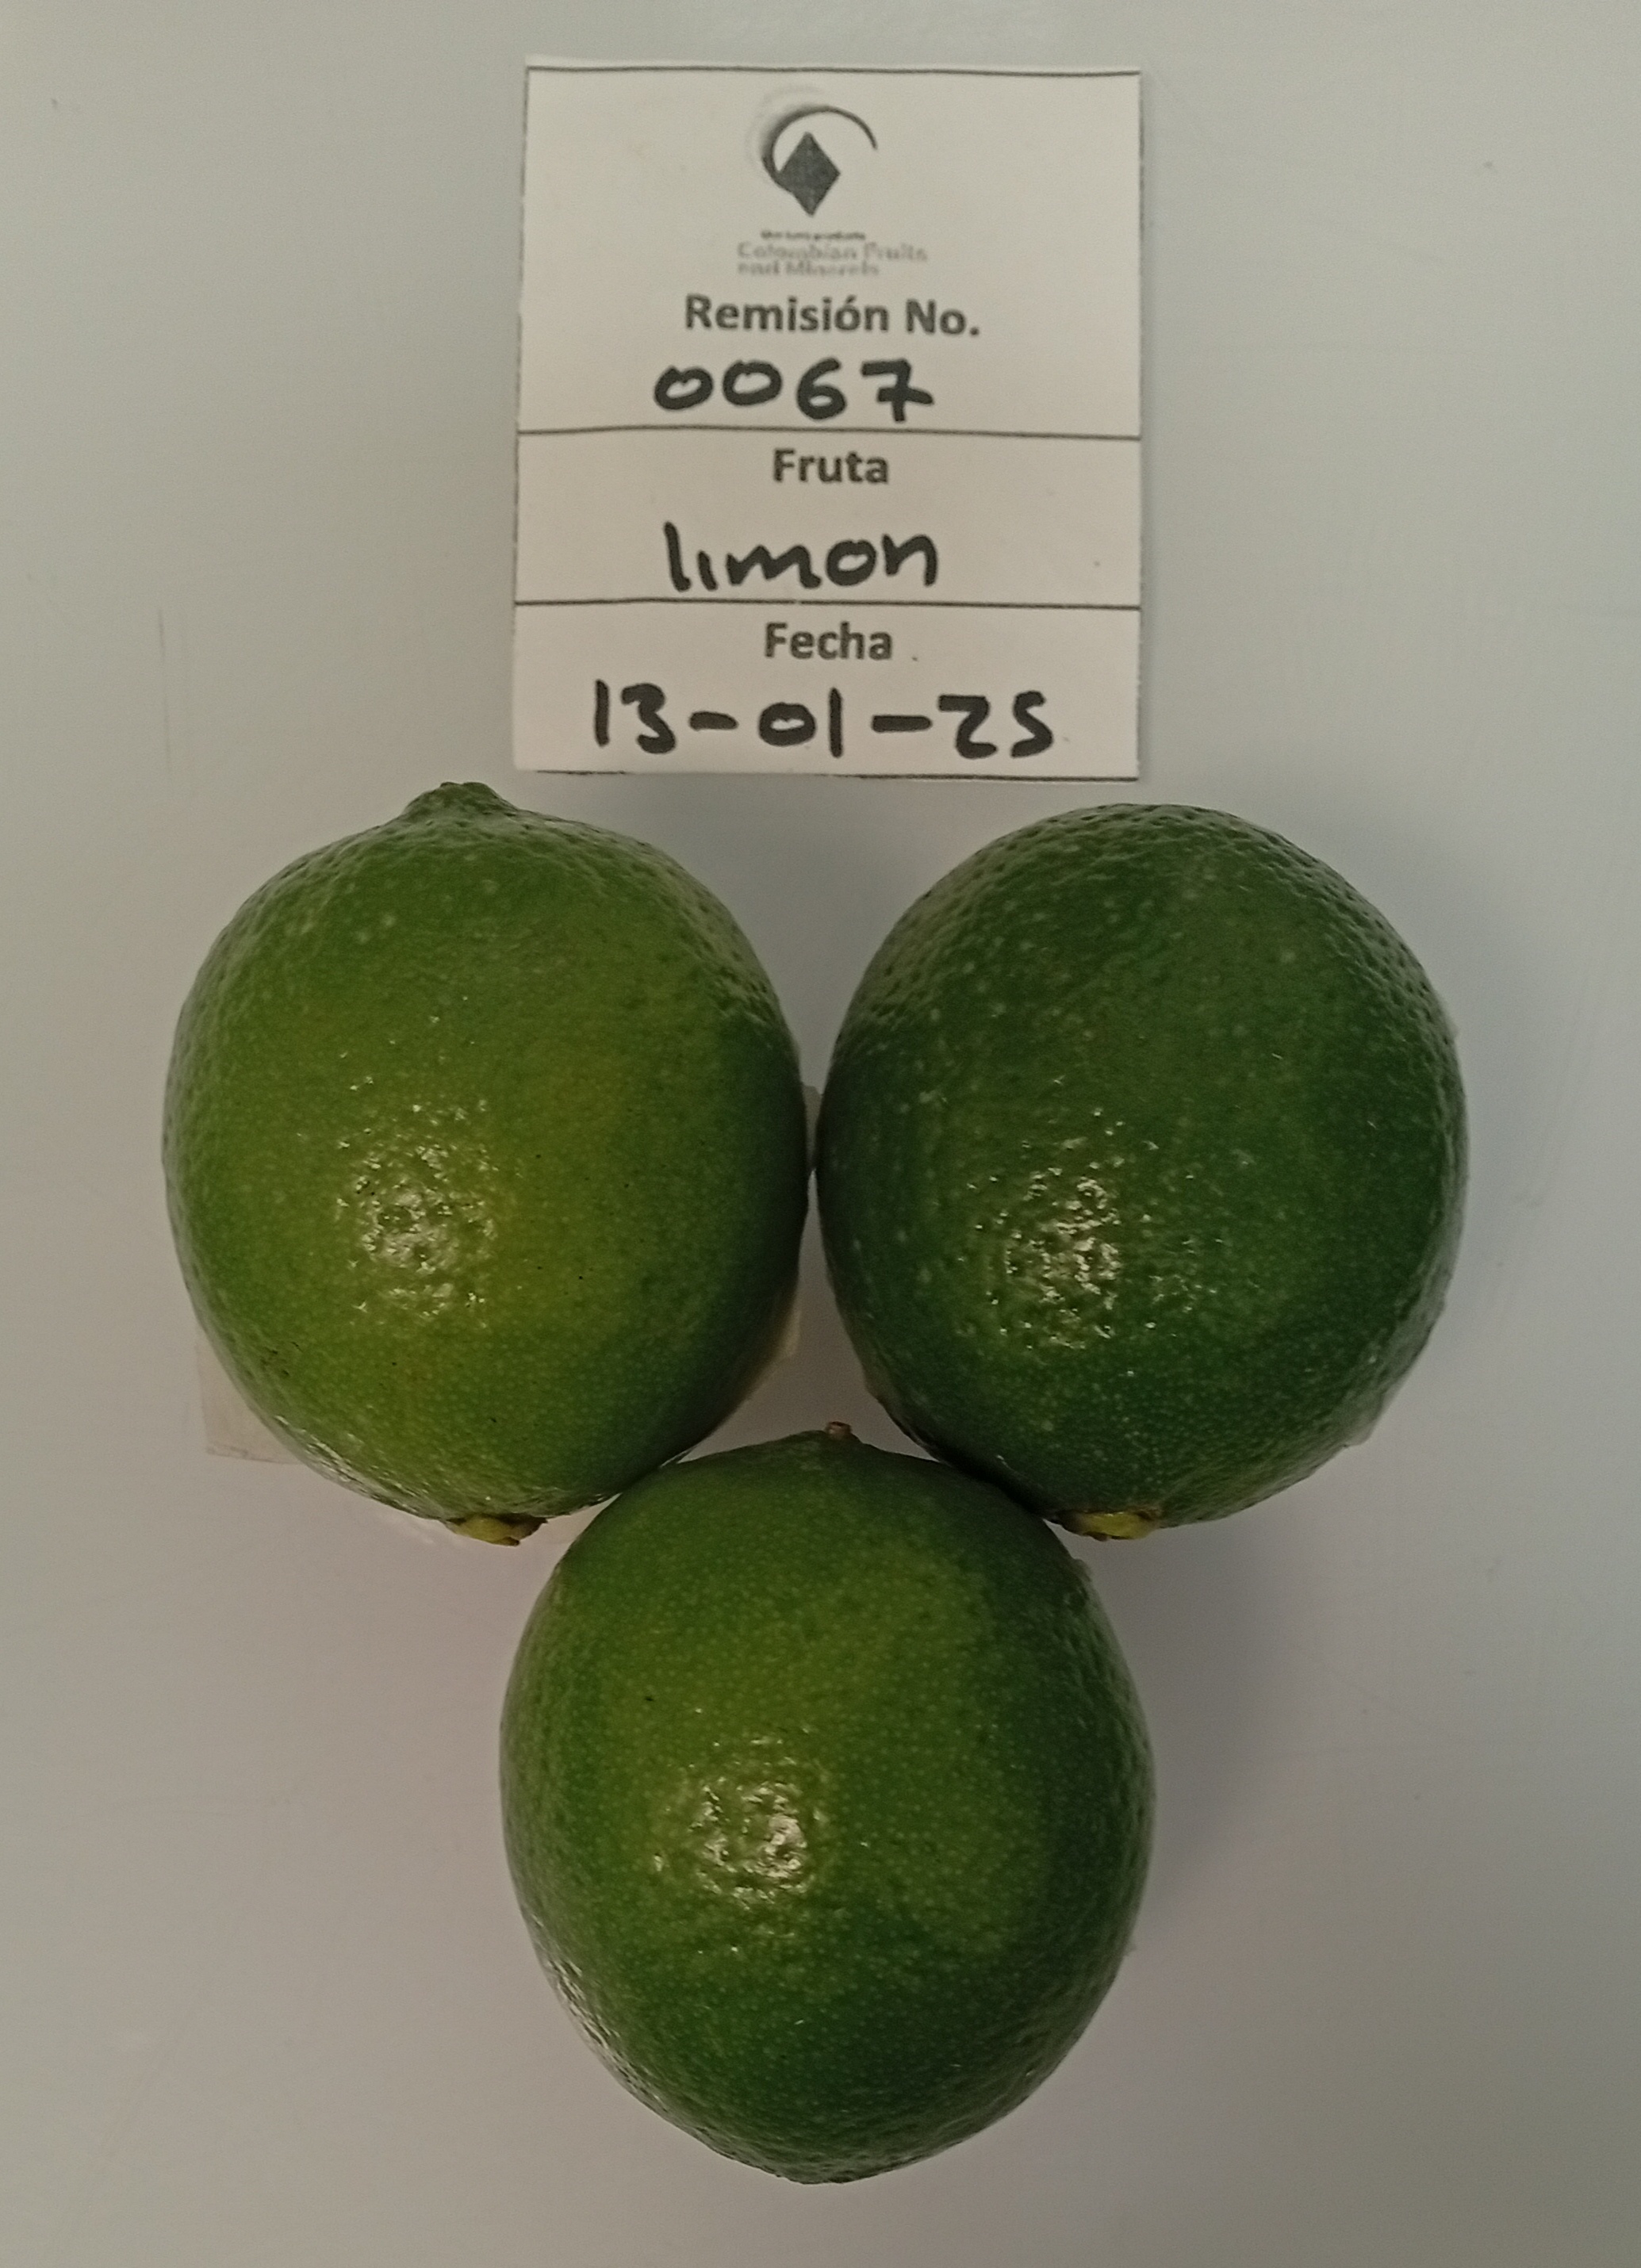 Colombian Fruits
and Minerals
Remisión No.
0067
Fruta
limon
Fecha
13-01-25